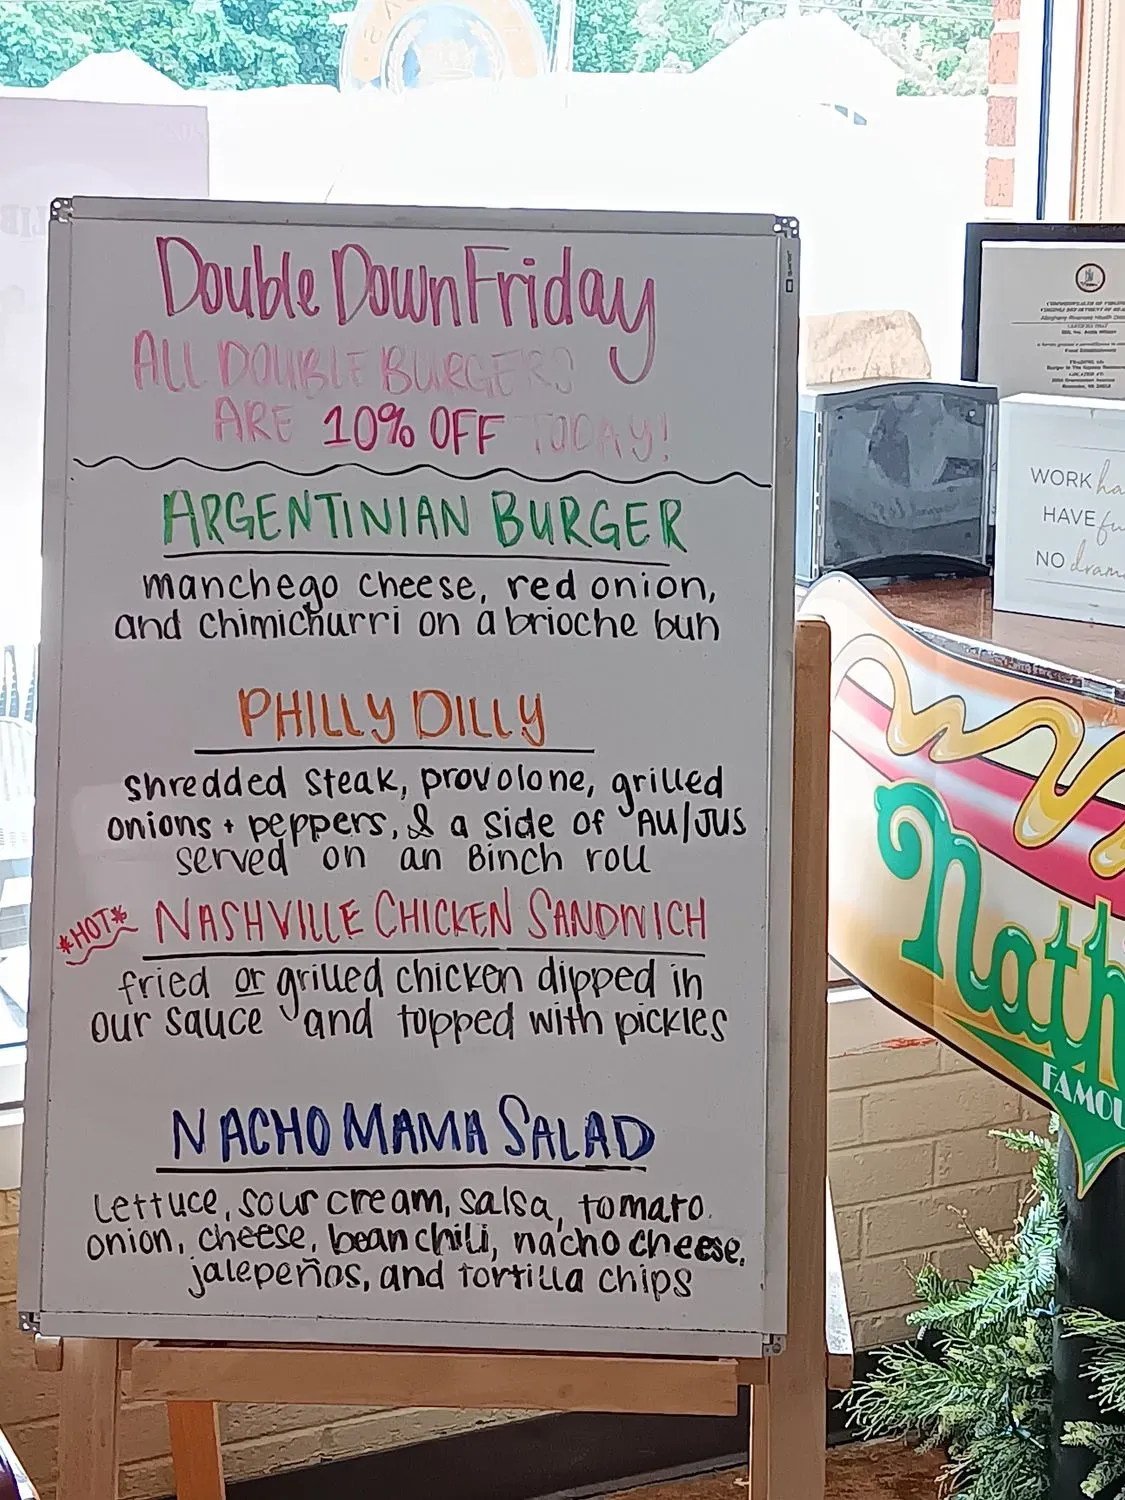 Double Down Friday
ALL DOUBLE BURGERS
ARE 10% OFF TODAY!
ARGENTINIAN BURGER
manchego cheese, red onion,
and chimichurri on a brioche bun
PHILLY DILLY
shredded steak, provolone, grilled
onions + peppers, & a side of AU/JUS
served on an 8inch roll
*HOT* NASHVILLE CHICKEN SANDWICH
fried or grilled chicken dipped in
our sauce and topped with pickles
NACHO MAMA SALAD
Lettuce, sour cream, salsa, tomato.
onion, cheese, bean chili, nacho cheese,
jalepeños, and tortilla chips
WORK ha
HAVE fu
NO dram
Nath
FAMOU